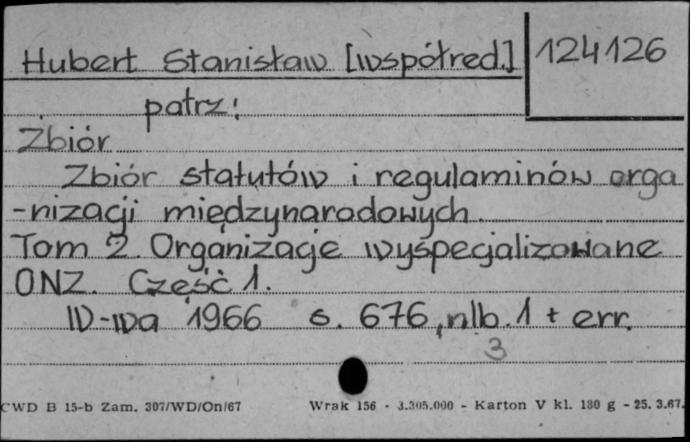 Hubert Stanisław [współred.] 124126
patrz:
Zbiór
Zbiór statutów i regulaminów orga
-nizacji międzynarodowych.
Tom 2. Organizacje wyspecjalizowane
ONZ. Część 1.
W-wa 1966 s. 676, nlb. 1 + err.
3
CWD B 15-b Zam. 307/WD/On/67 Wrak 156 - 3.305.000 - Karton V kl. 180 g - 25. 3.67.